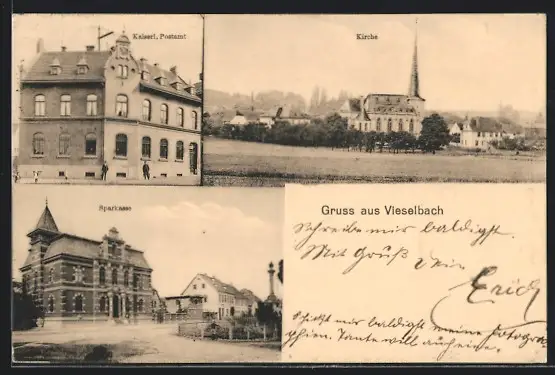 Kaiserl. Postamt
Kirche
Sparkasse
Gruss aus Vieselbach
Schreibe mir baldigst.
Mit Gruß Dein
Erich
Schickt mir baldigst meine Fotogra-
phien. Tante will auch eine.